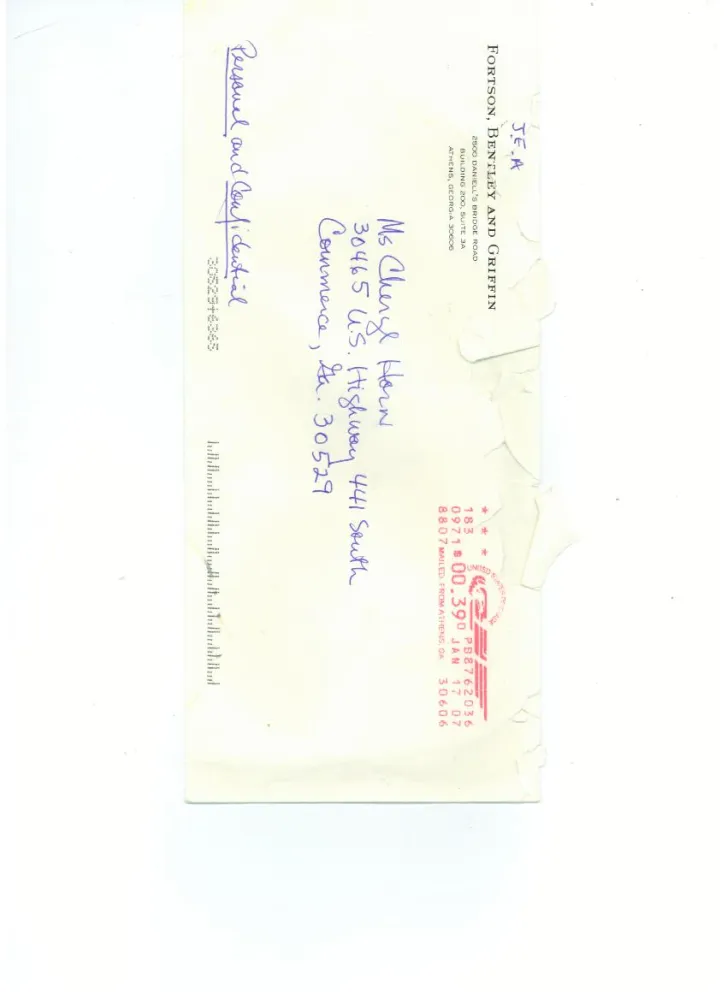 J.E.A
FORTSON, BENTLEY AND GRIFFIN
2500 DANIELL'S BRIDGE ROAD
BUILDING 200, SUITE 3A
ATHENS, GEORGIA 30606
* * *
UNITED STATES POSTAGE
183 PB8762036
0971 $00.390 JAN 17 07
8807 MAILED FROM ATHENS, GA 30606
Ms Cheryl Horn
30465 U.S. Highway 441 South
Commerce, Ga. 30529
Personal and Confidential
30529+6365